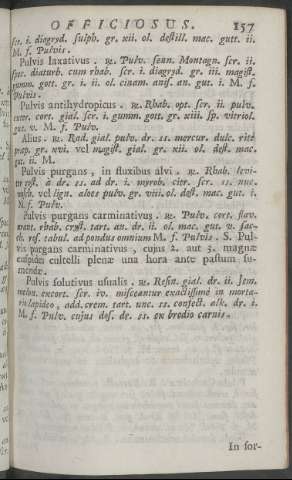 OFFICIOSUS. 157
scr. i. diagryd. sulph. gr. xii. ol. destill. mac. gutt. ii.
M. f. Pulvis.
Pulvis laxativus. ℞. Pulv. senn. Montagn. scr. ii.
spec. diaturb. cum rhab. scr. i. diagryd. gr. iii. magist.
gumm. gott. gr. i. ii. ol. cinam. anis. an. gut. i. M. f.
Pulvis.
Pulvis antihydropicus. ℞. Rhab. opt. scr. ii. pulv.
cort. gial. scr. i. gumm. gott. gr. xiii. sp. vitriol.
gut. v. M. f. Pulv.
Alius. ℞. Rad. gial. pulv. dr. ss. mercur. dulc. ritè
præp. gr. xvi. vel magist. gial. gr. xii. ol. dest. mac.
gut. ii. M.
Pulvis purgans, in fluxibus alvi. ℞. Rhab. levi-
ter tost. a dr. ss. ad dr. i. myrob. citr. scr. ss. nuc.
mosch. vel lign. aloes pulv. gr. viii. ol. dest. mac. gut. i.
M. f. Pulv.
Pulvis purgans carminativus. ℞. Pulv. cort. flav.
rhab. cryst. tart. an. dr. ii. ol. mac. gut. v. sac-
ch. ros. tabul. ad pondus omnium M. f. Pulvis. S. Pul-
vis purgans carminativus, cujus 2. aut 3. magnæ
cuspides cultelli plenæ una hora ante pastum su-
mendæ.
Pulvis solutivus usualis. ℞. Resin. gial. dr. ii. Sem.
melon. excort. scr. iv. misceantur exactissimè in morta-
rio lapideo, add. crem. tart. unc. ss. confect. alk. dr. i.
M. f. Pulv. cujus dos. dr. ss. ex brodio carnis.
In for-